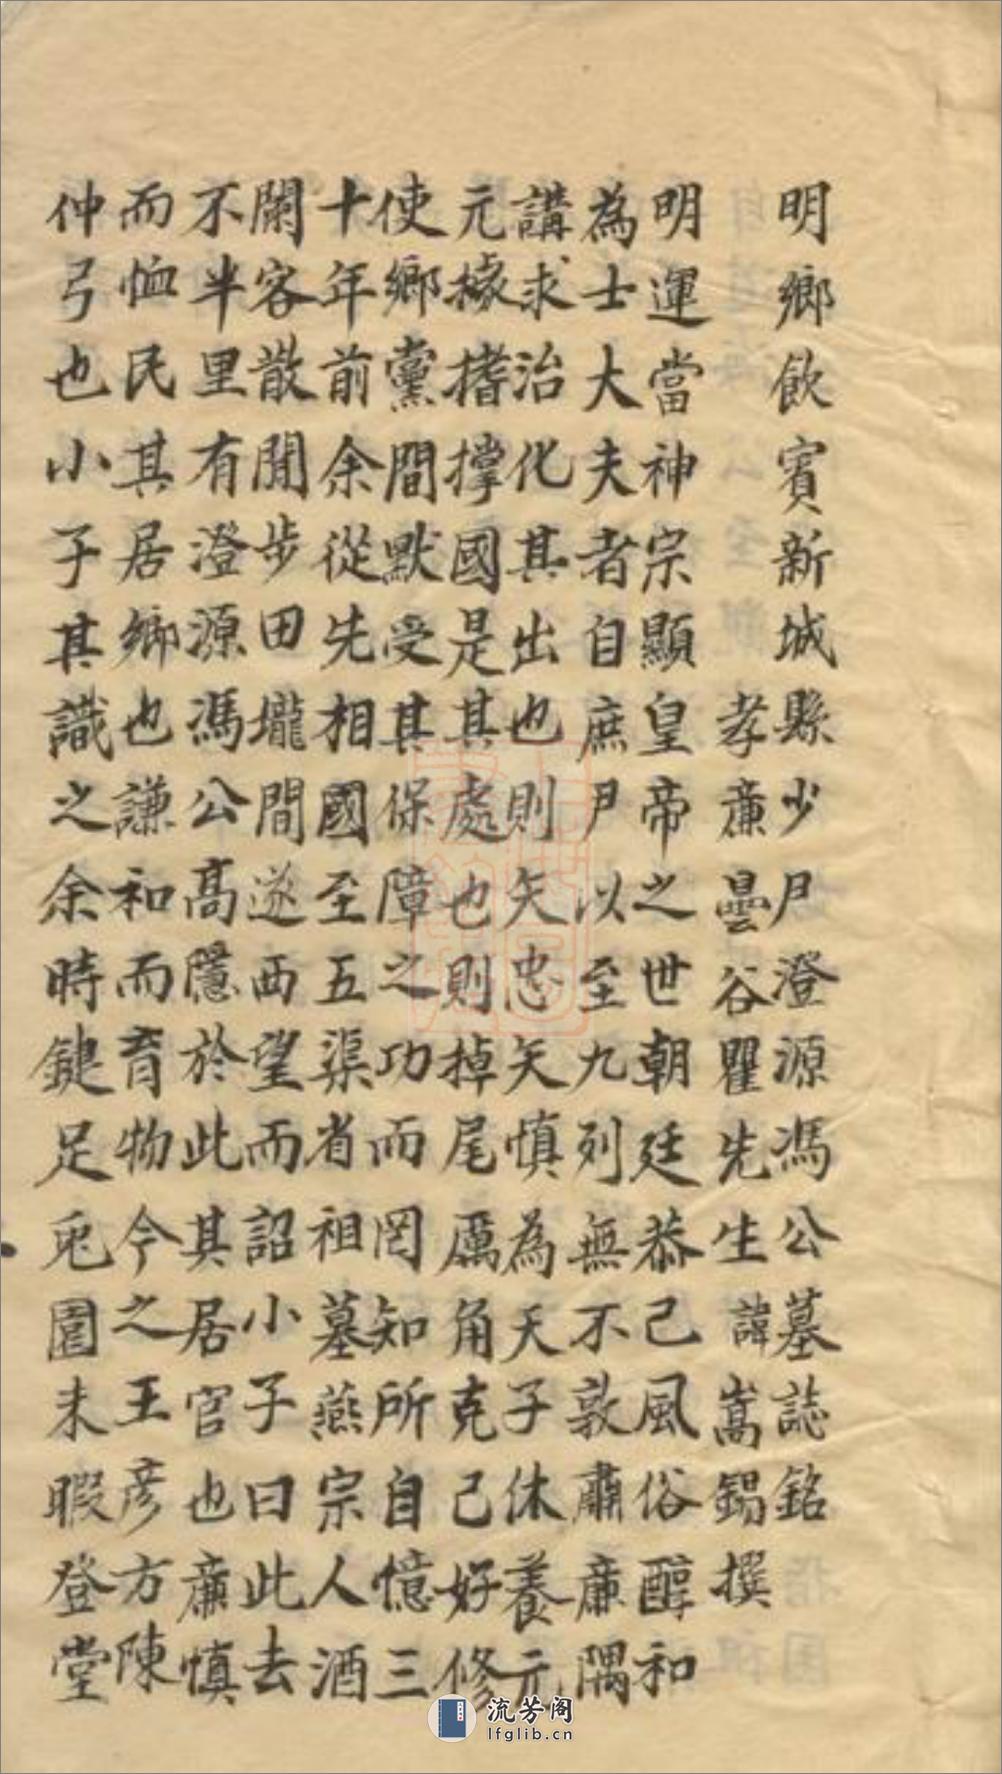 明鄉飲賓新城縣少尹澄源馮公墓誌銘
孝廉曇谷瞿先生諱嵩錫撰
明運當神宗顯皇帝之世朝廷恭己風俗醇和
為士大夫者自庶尹以至九列無不敦肅廉隅
講求治化其出也則矢忠矢慎為天子休養元
元據撐國是其處也則掉尾厲角克己好修
使鄉黨間默受其保障之功而罔知所自憶三
十年前余從先相國至五渠省祖墓燕宗人酒
闌客散閒步田壠間遂西望而詔小子曰此去
不半里有澄源馮公高隱於此其居官也廉慎
而恤民其居鄉也謙和而育物今之王彥方陳
仲弓也小子其識之余時鍵足兎園未暇登堂
流芳阁
lfglib.cn